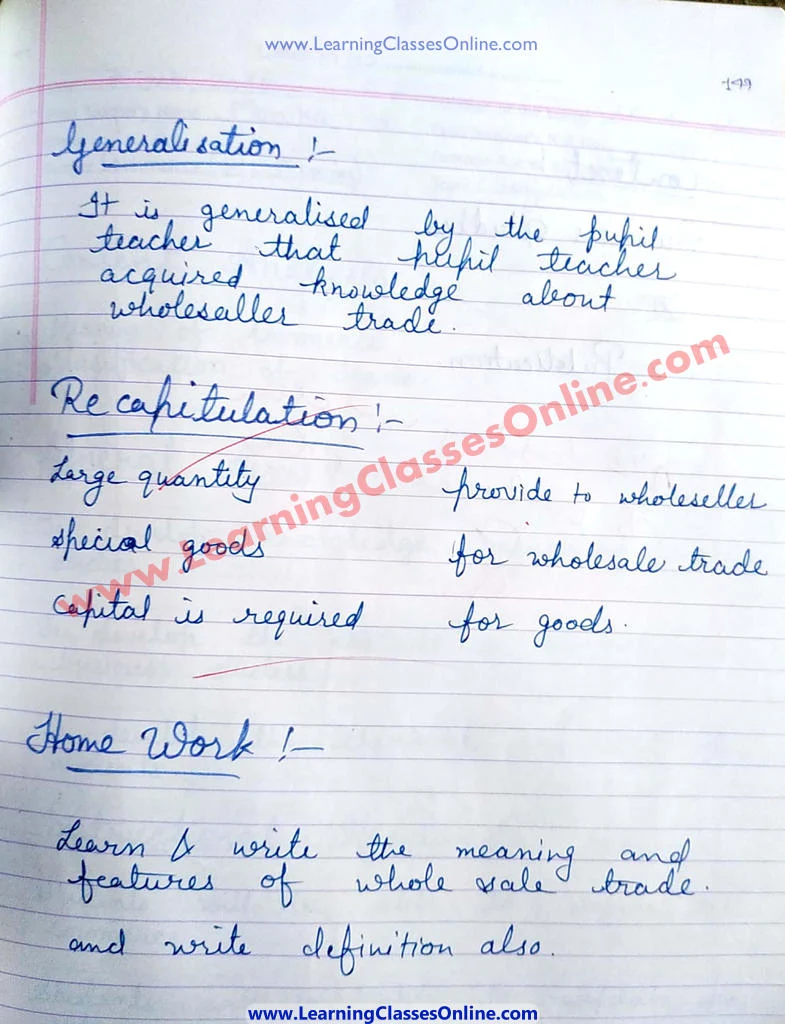 www.LearningClassesOnline.com
Generalisation :-
It is generalised by the pupil
teacher that pupil teacher
acquired knowledge about
wholesaller trade.
Recapitulation :-
Large quantity provide to wholeseller
special goods for wholesale trade
Capital is required for goods.
www.LearningClassesOnline.com
Home Work :-
Learn & write the meaning and
features of whole sale trade.
and write definition also.
www.LearningClassesOnline.com